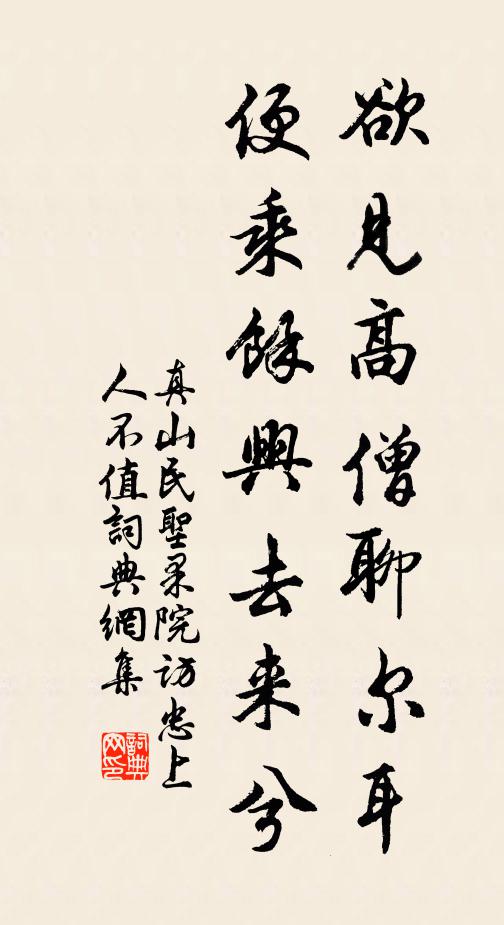 欲見高僧聊尔耳
便乘餘興去来兮
真山民聖果院訪忠上
人不值詞典網集
詞典
网印